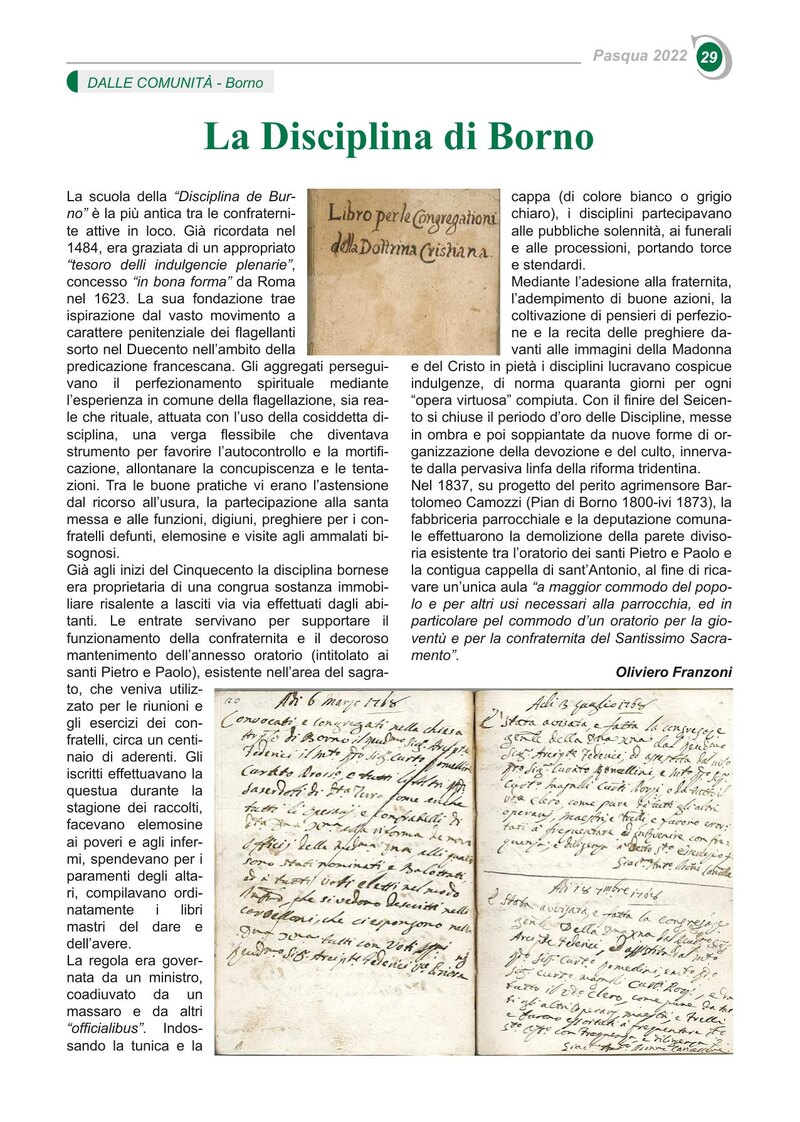 Pasqua 2022 29
DALLE COMUNITÀ - Borno
La Disciplina di Borno
La scuola della “Disciplina de Bur-
no” è la più antica tra le confraterni-
te attive in loco. Già ricordata nel
1484, era graziata di un appropriato
“tesoro delli indulgencie plenarie”,
concesso “in bona forma” da Roma
nel 1623. La sua fondazione trae
ispirazione dal vasto movimento a
carattere penitenziale dei flagellanti
sorto nel Duecento nell’ambito della
predicazione francescana. Gli aggregati persegui-
vano il perfezionamento spirituale mediante
l’esperienza in comune della flagellazione, sia rea-
le che rituale, attuata con l’uso della cosiddetta di-
sciplina, una verga flessibile che diventava
strumento per favorire l’autocontrollo e la mortifi-
cazione, allontanare la concupiscenza e le tenta-
zioni. Tra le buone pratiche vi erano l’astensione
dal ricorso all’usura, la partecipazione alla santa
messa e alle funzioni, digiuni, preghiere per i con-
fratelli defunti, elemosine e visite agli ammalati bi-
sognosi.
Già agli inizi del Cinquecento la disciplina bornese
era proprietaria di una congrua sostanza immobi-
liare risalente a lasciti via via effettuati dagli abi-
tanti. Le entrate servivano per supportare il
funzionamento della confraternita e il decoroso
mantenimento dell’annesso oratorio (intitolato ai
santi Pietro e Paolo), esistente nell’area del sagra-
to, che veniva utiliz-
zato per le riunioni e
gli esercizi dei con-
fratelli, circa un centi-
naio di aderenti. Gli
iscritti effettuavano la
questua durante la
stagione dei raccolti,
facevano elemosine
ai poveri e agli infer-
mi, spendevano per i
paramenti degli alta-
ri, compilavano ordi-
natamente i libri
mastri del dare e
dell’avere.
La regola era gover-
nata da un ministro,
coadiuvato da un
massaro e da altri
“officialibus”. Indos-
sando la tunica e la
Libro per le Congregationi
della Dottrina Cristiana.
cappa (di colore bianco o grigio
chiaro), i disciplini partecipavano
alle pubbliche solennità, ai funerali
e alle processioni, portando torce
e stendardi.
Mediante l’adesione alla fraternita,
l’adempimento di buone azioni, la
coltivazione di pensieri di perfezio-
ne e la recita delle preghiere da-
vanti alle immagini della Madonna
e del Cristo in pietà i disciplini lucravano cospicue
indulgenze, di norma quaranta giorni per ogni
“opera virtuosa” compiuta. Con il finire del Seicen-
to si chiuse il periodo d’oro delle Discipline, messe
in ombra e poi soppiantate da nuove forme di or-
ganizzazione della devozione e del culto, innerva-
te dalla pervasiva linfa della riforma tridentina.
Nel 1837, su progetto del perito agrimensore Bar-
tolomeo Camozzi (Pian di Borno 1800-ivi 1873), la
fabbriceria parrocchiale e la deputazione comuna-
le effettuarono la demolizione della parete diviso-
ria esistente tra l’oratorio dei santi Pietro e Paolo e
la contigua cappella di sant’Antonio, al fine di rica-
vare un’unica aula “a maggior commodo del popo-
lo e per altri usi necessari alla parrocchia, ed in
particolare pel commodo d’un oratorio per la gio-
ventù e per la confraternita del Santissimo Sacra-
mento”.
Oliviero Franzoni
Adi 6 marzo 1768
Convocati, e congregati nella chiesa